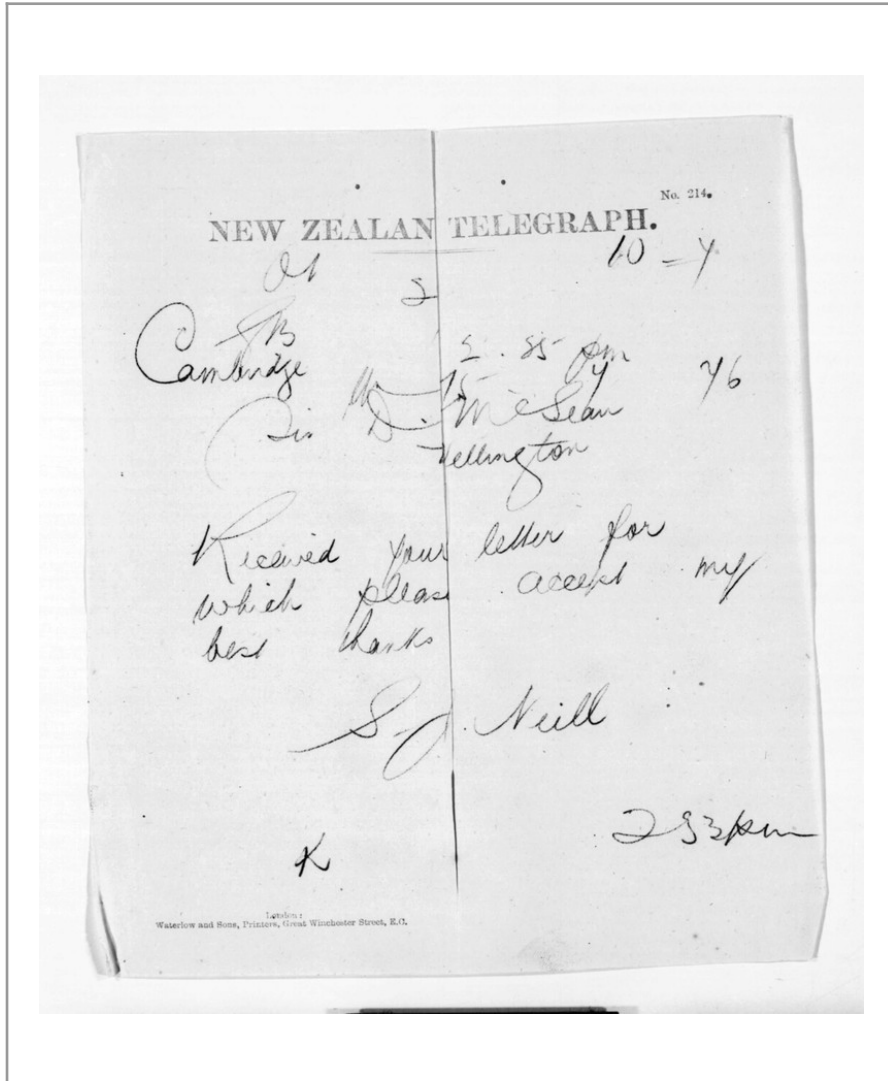 No. 214.
NEW ZEALAN TELEGRAPH.
10 = 4
2
Cambridge
pm
Sir D. McLean
76
Wellington
Received your letter for
which please accept my
best thanks
S. J. Neill
K
2 53 pm
London:
Waterlow and Sons, Printers, Great Winchester Street, E.C.